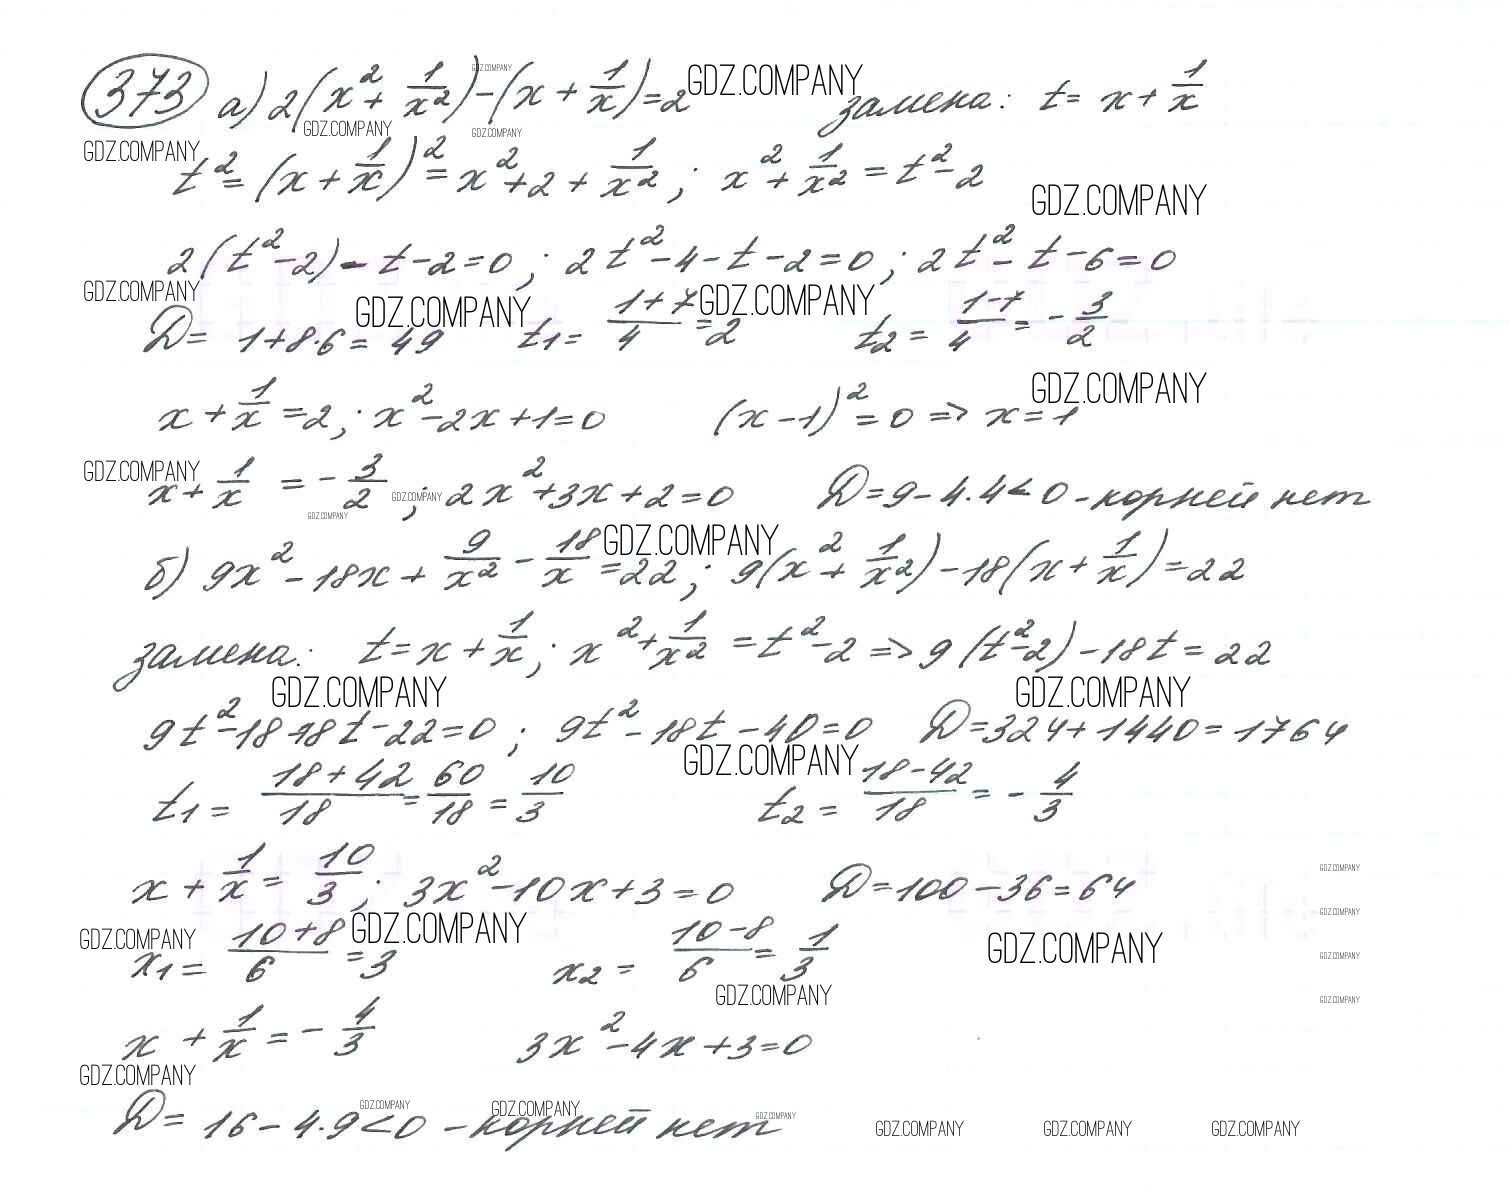 373 а) 2(x² + 1/x²) - (x + 1/x) = 2 GDZ.COMPANY замена: t = x + 1/x
GDZ.COMPANY GDZ.COMPANY GDZ.COMPANY GDZ.COMPANY
t² = (x + 1/x)² = x² + 2 + 1/x² ; x² + 1/x² = t² - 2
GDZ.COMPANY
2(t² - 2) - t - 2 = 0 ; 2t² - 4 - t - 2 = 0 ; 2t² - t - 6 = 0
GDZ.COMPANY GDZ.COMPANY GDZ.COMPANY
D = 1 + 8·6 = 49 t1 = (1+7)/4 = 2 t2 = (1-7)/4 = - 3/2
GDZ.COMPANY
x + 1/x = 2 ; x² - 2x + 1 = 0 (x - 1)² = 0 => x = 1
GDZ.COMPANY
x + 1/x = - 3/2 ; GDZ.COMPANY 2x² + 3x + 2 = 0 D = 9 - 4·4 < 0 - корней нет
GDZ.COMPANY
б) 9x² - 18x + 9/x² - 18/x = 22 ; GDZ.COMPANY 9(x² + 1/x²) - 18(x + 1/x) = 22
замена: t = x + 1/x ; x² + 1/x² = t² - 2 => 9(t² - 2) - 18t = 22
GDZ.COMPANY GDZ.COMPANY
9t² - 18 - 18t - 22 = 0 ; 9t² - 18t - 40 = 0 D = 324 + 1440 = 1764
GDZ.COMPANY
t1 = (18+42)/18 = 60/18 = 10/3 t2 = (18-42)/18 = - 4/3
x + 1/x = 10/3 ; 3x² - 10x + 3 = 0 D = 100 - 36 = 64
GDZ.COMPANY
GDZ.COMPANY
GDZ.COMPANY GDZ.COMPANY GDZ.COMPANY
x1 = (10+8)/6 = 3 x2 = (10-8)/6 = 1/3
GDZ.COMPANY
GDZ.COMPANY GDZ.COMPANY
x + 1/x = - 4/3 3x² - 4x + 3 = 0
GDZ.COMPANY
GDZ.COMPANY GDZ.COMPANY GDZ.COMPANY
D = 16 - 4·9 < 0 - корней нет GDZ.COMPANY GDZ.COMPANY GDZ.COMPANY